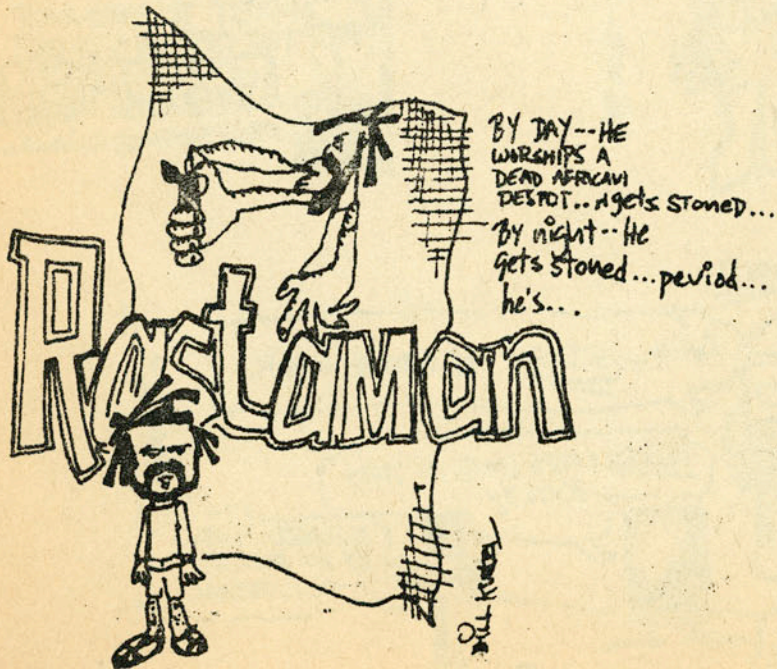 BY DAY--HE
WORSHIPS A
DEAD AFRICAN
DESPOT..n gets stoned...
By night--He
gets stoned...period...
he's...
Rastaman
Bill